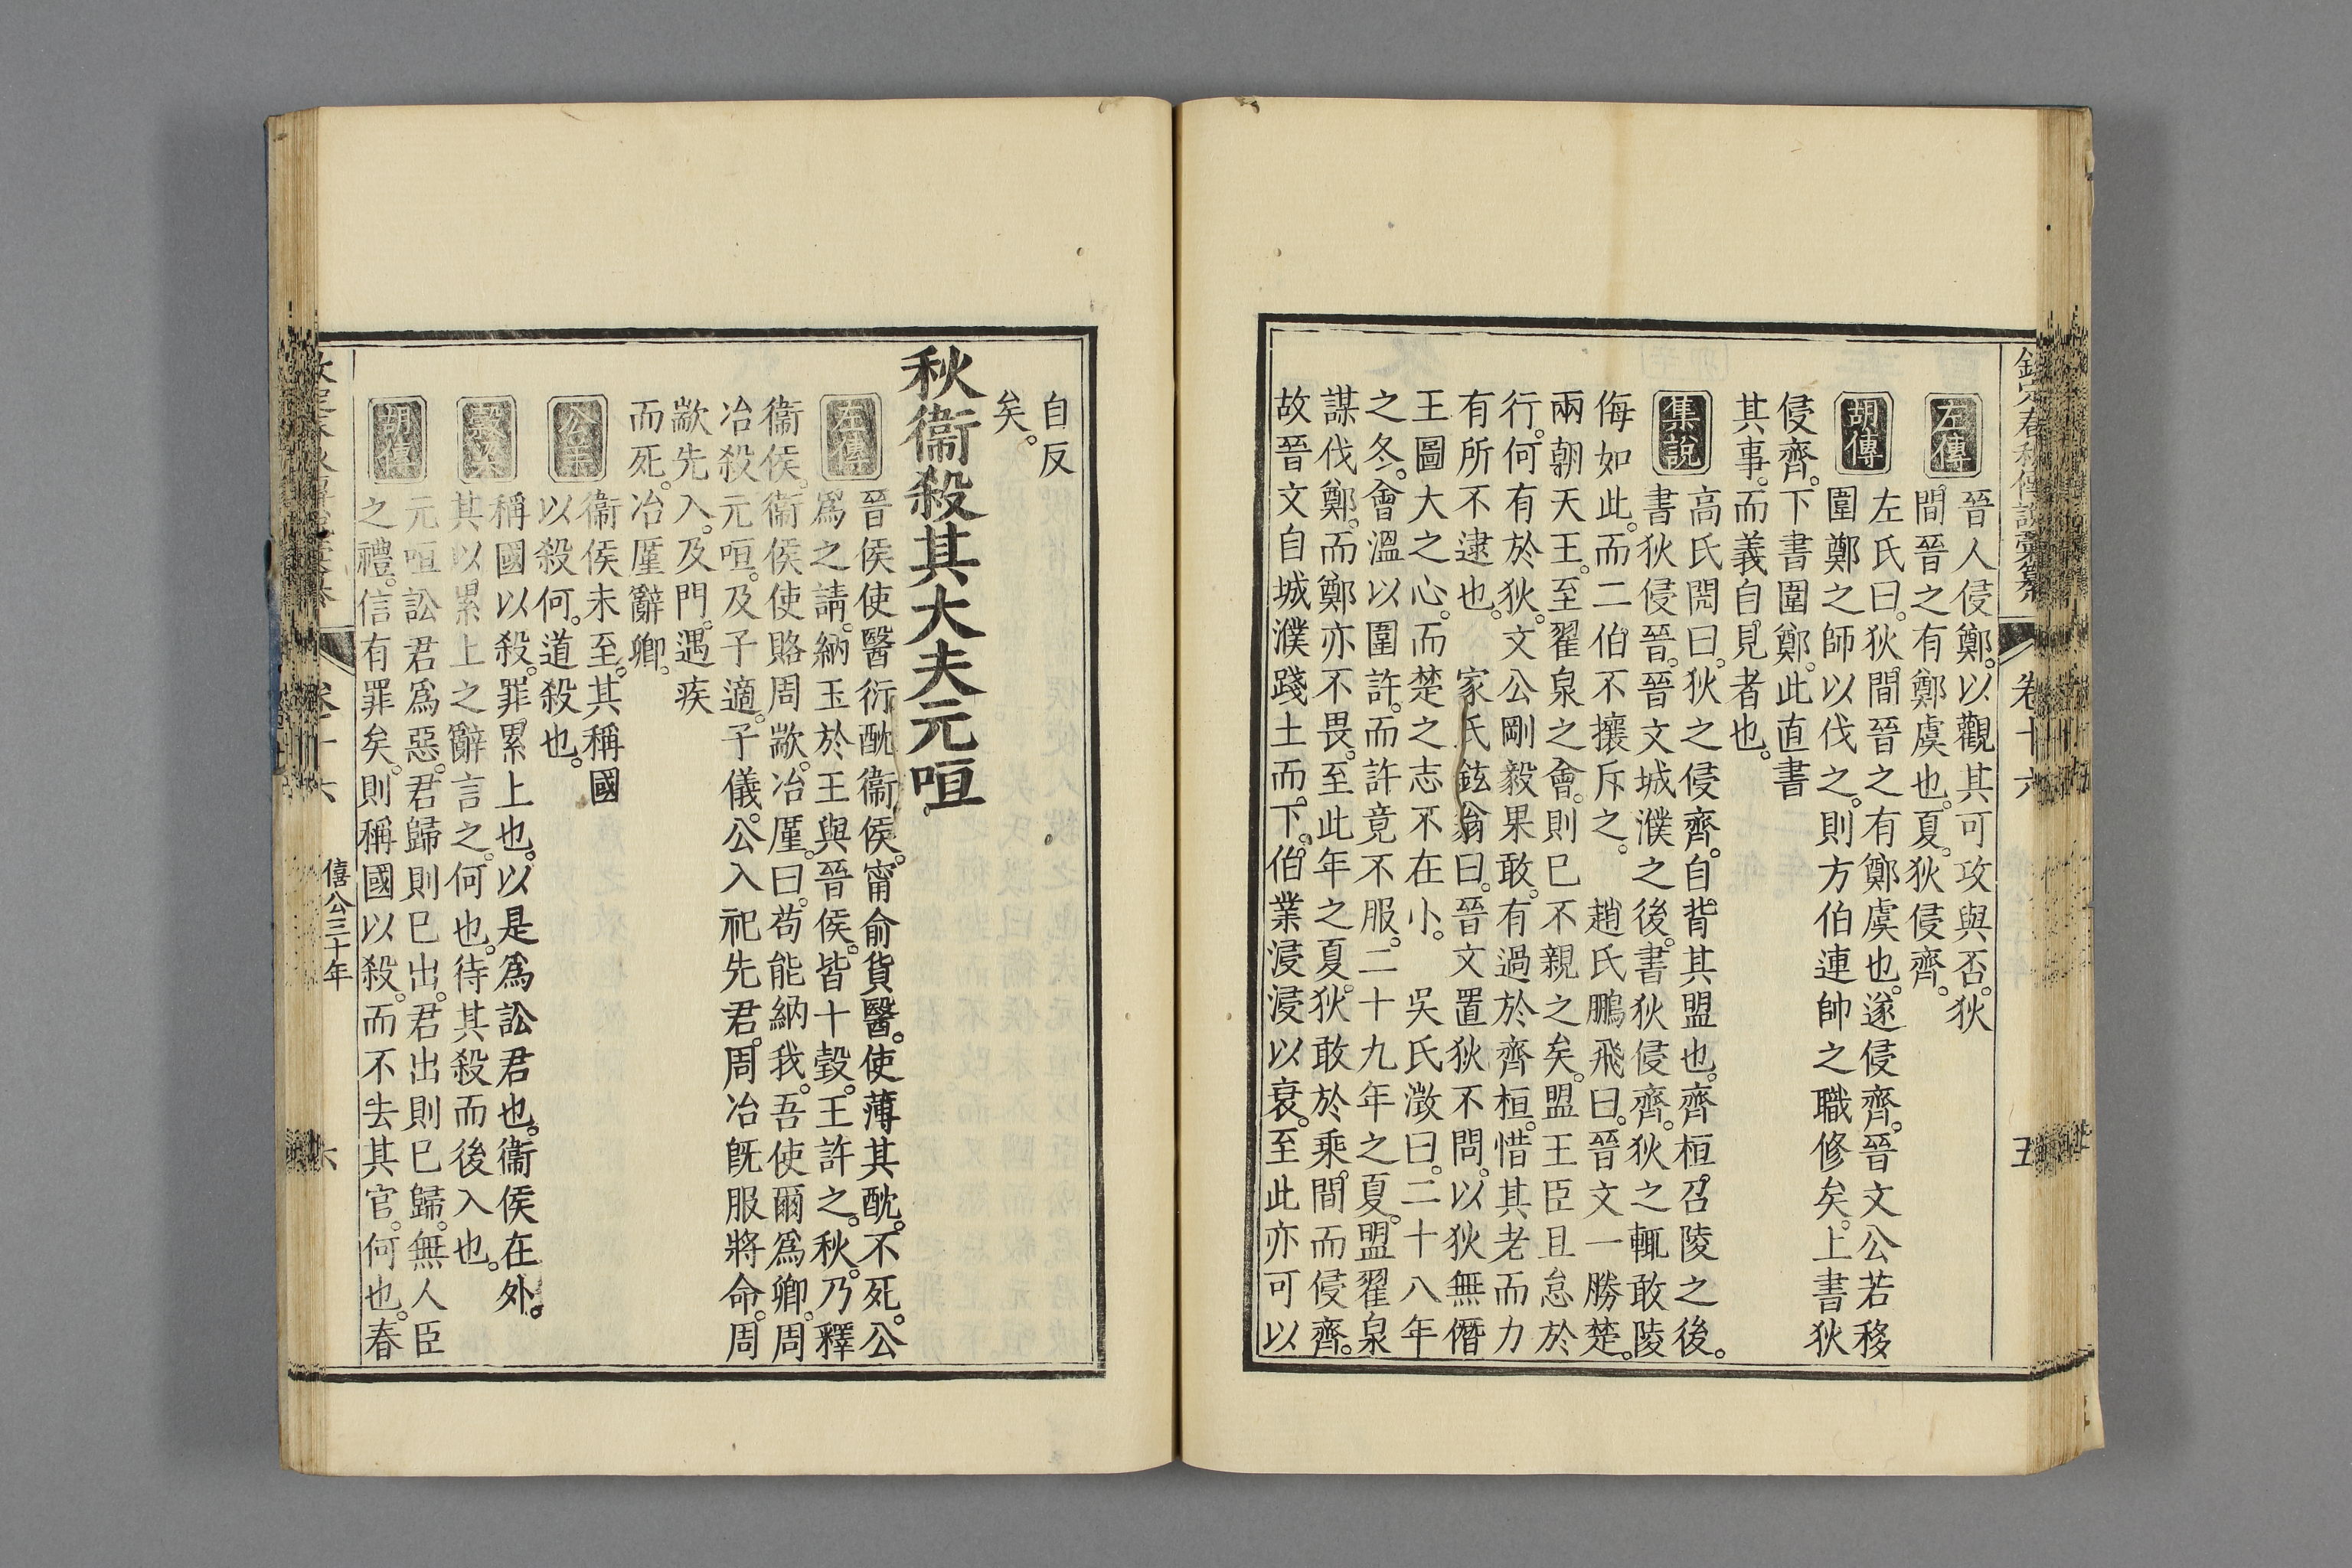 欽定春秋傳說彙纂 卷十六 五
左傳 晉人侵鄭。以觀其可攻與否。狄
間晉之有鄭虞也。夏。狄侵齊。
胡傳 左氏曰。狄間晉之有鄭虞也。遂侵齊。晉文公若移
圍鄭之師以伐之。則方伯連帥之職修矣。上書狄
侵齊。下書圍鄭。此直書
其事。而義自見者也。
集說 高氏閌曰。狄之侵齊。自背其盟也。齊桓。召陵之後。
書狄侵晉。晉文城濮之後。書狄侵齊。狄之輒敢陵
侮如此。而二伯不攘斥之。 趙氏鵬飛曰。晉文一勝楚。
兩朝天王。至翟泉之會。則已不親之矣。盟王臣且怠於
行。何有於狄。文公剛毅果敢。有過於齊桓。惜其老而力
有所不逮也。 家氏鉉翁曰。晉文置狄不問。以狄無僭
王圖大之心。而楚之志不在小。 吳氏澂曰。二十八年
之冬。會溫以圍許。而許竟不服。二十九年之夏。盟翟泉
謀伐鄭。而鄭亦不畏。至此年之夏。狄敢於乘間而侵齊。
故晉文自城濮踐土而下。伯業浸浸以衰。至此亦可以
自反
矣。
秋衞殺其大夫元咺
左傳 晉侯使醫衍酖衞侯。甯俞貨醫。使薄其酖。不死。公
爲之請。納玉於王與晉侯。皆十瑴。王許之。秋。乃釋
衞侯。衞侯使賂周歂。冶廑。曰。苟能納我。吾使爾爲卿。周
冶殺元咺。及子適。子儀。公入祀先君。周冶旣服將命。周
歂先入。及門。遇疾
而死。冶廑辭卿。
公羊 衞侯未至。其稱國
以殺何。道殺也。
穀梁 稱國以殺。罪累上也。以是爲訟君也。衞侯在外。
其以累上之辭言之。何也。待其殺而後入也。
胡傳 元咺訟君爲惡。君歸則已出。君出則已歸。無人臣
之禮。信有罪矣。則稱國以殺。而不去其官。何也。春
卷十六 僖公三十年 六